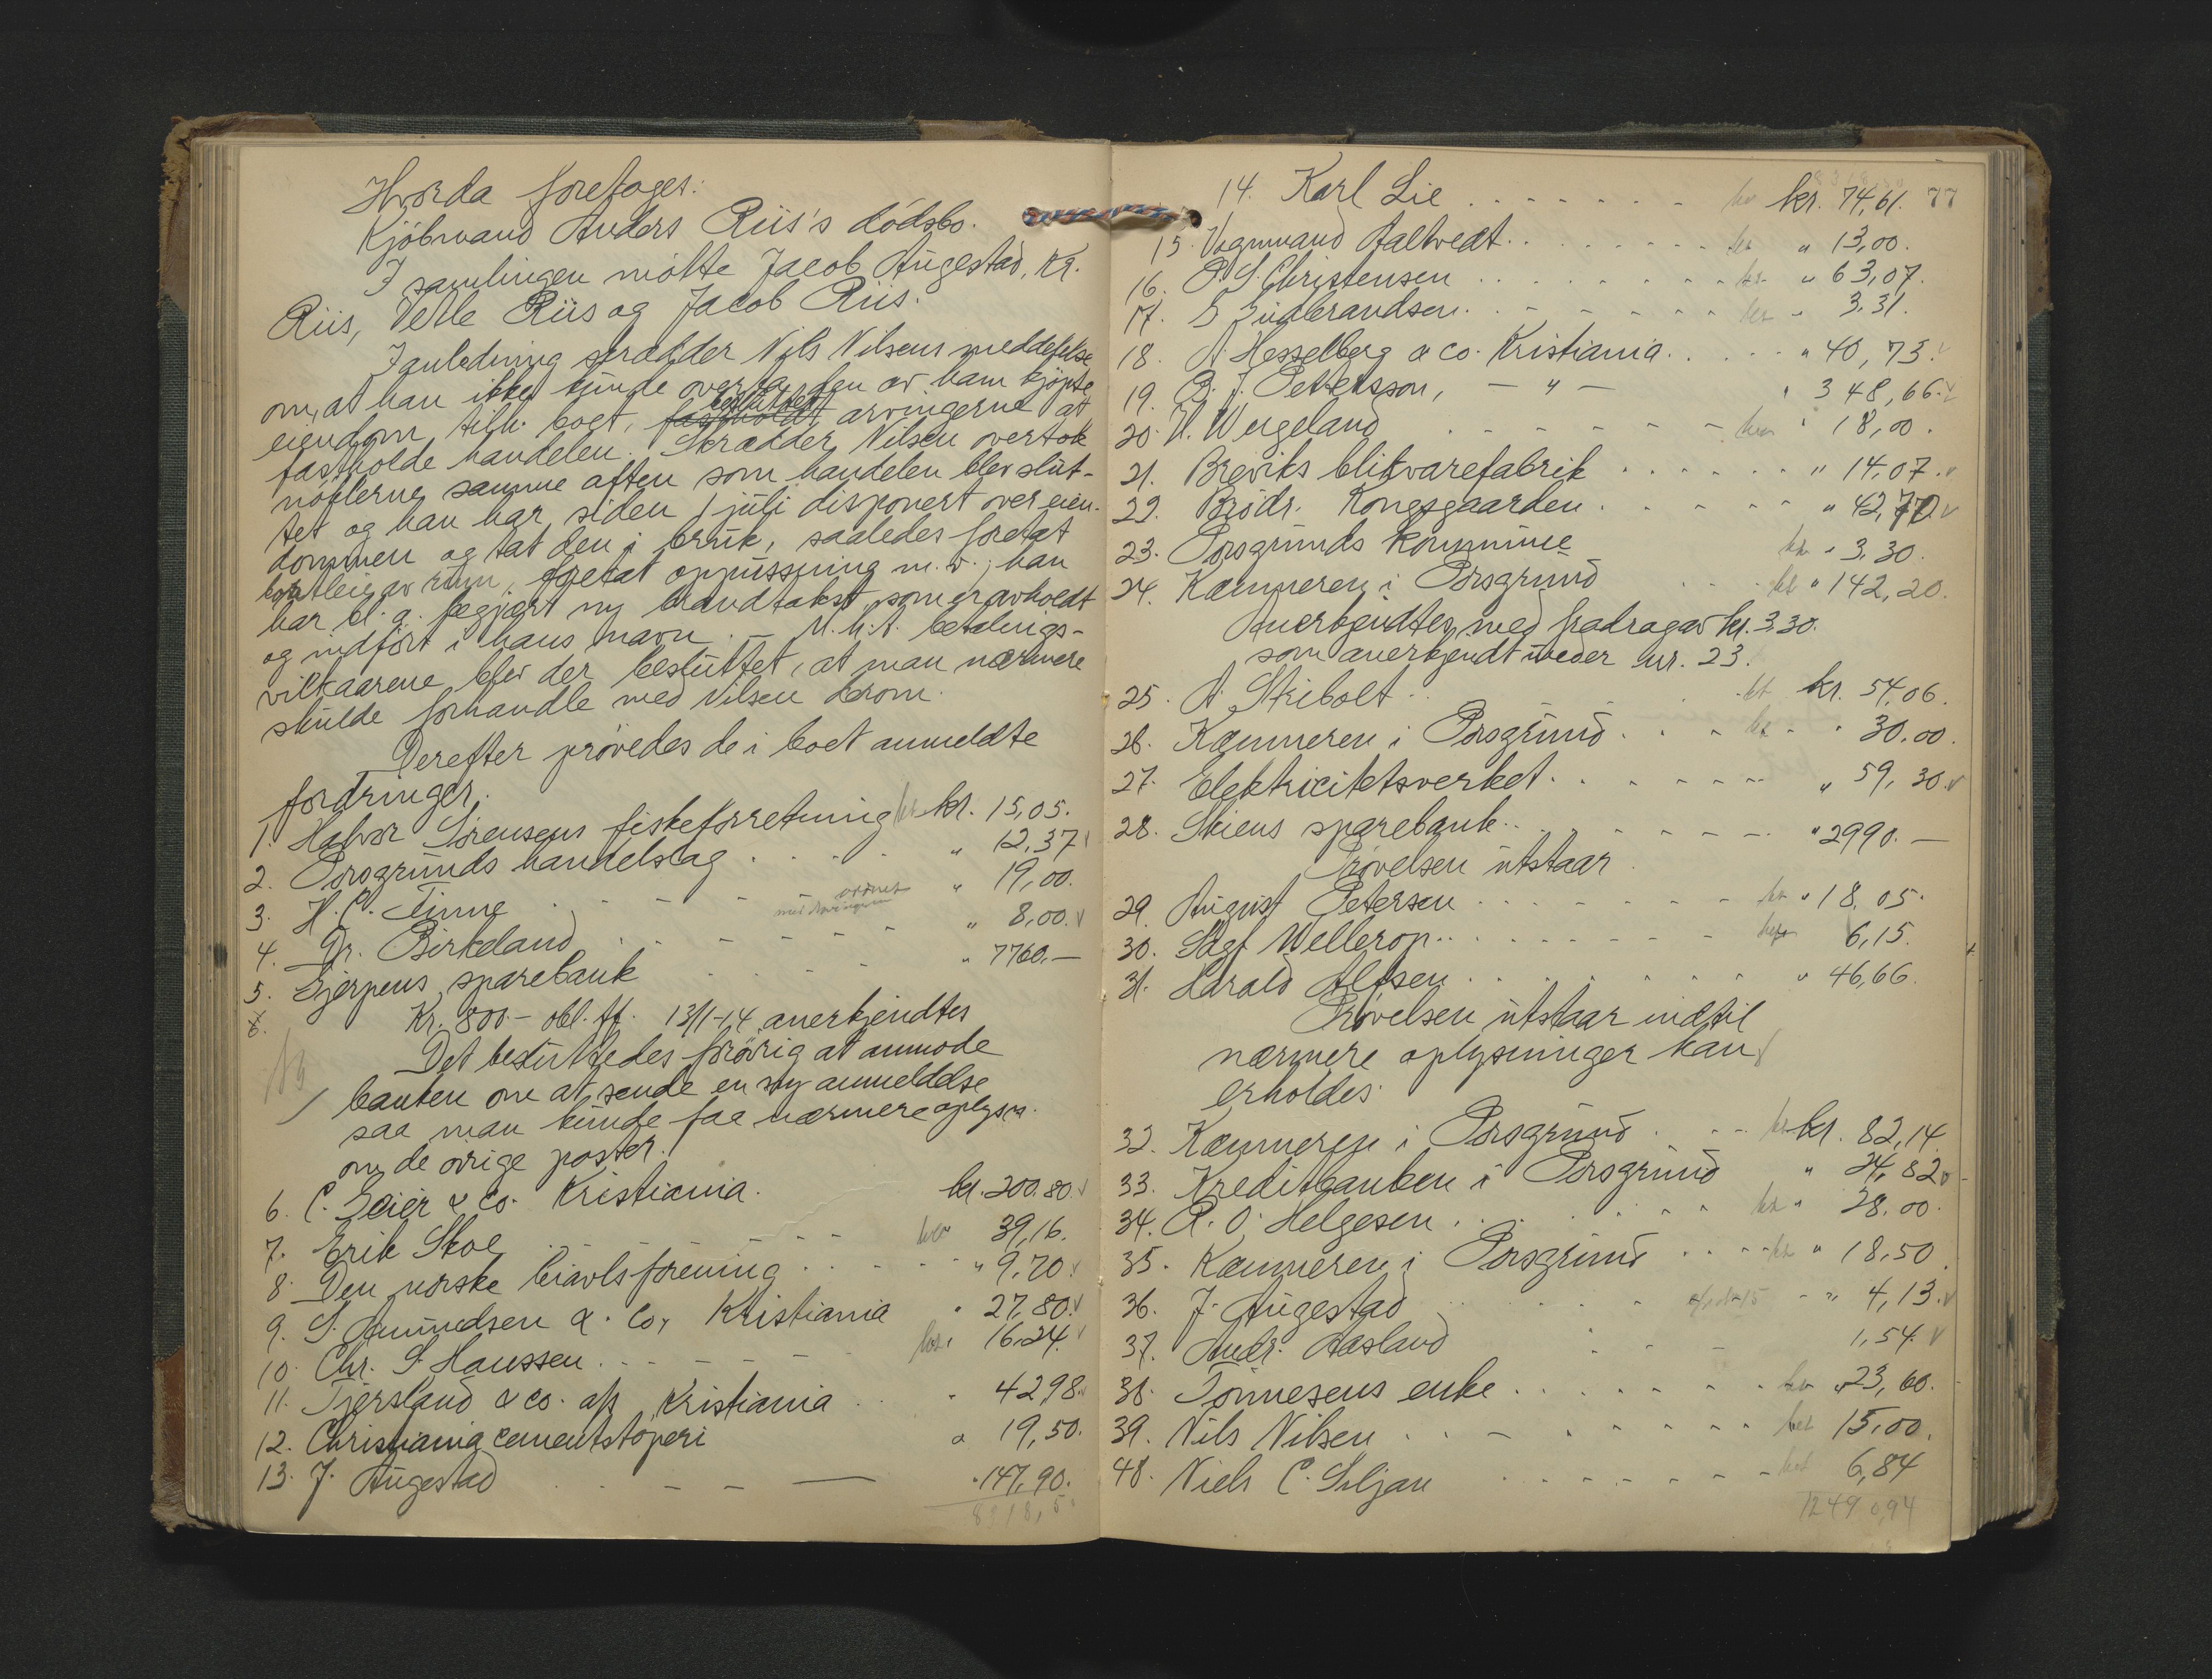 Hvorda foretages:
Kjøbmand Anders Riis's dödsbo.
I samlingen mötte Jacob Augestad, Kr.
Riis, Velle Riis og Jacob Riis.
I anledning skrædder Nils Nilsens meddelelse
om, at han ikke kunde overta den av ham kjöpte
eiendom tilh. boet, besluttet arvingerne at
fastholde handelen. Skrædder Nilsen overtok
nöklerne samme aften som handelen blev slut-
tet og han har siden 1 juli disponert over eien-
dommen og tat den i bruk, saaledes foretat
bortleie av rum, foretat oppussning m.v.; han
har bl.a. begjært ny brandtakst, som er avholdt
og indfört i hans navn. – M.h.t. betalings-
vilkaarene blev der besluttet, at man nærmere
skulde forhandle med Nilsen derom.
Derefter prøvedes de i boet anmeldte
fordringer.
1. Halvor Sörensens fiskeforretning kr. 15,05.
2. Porsgrunds handelslag . . . . " 12,37
3. H. C. Finne . . . . ordnet " 19,00.
4. Dr. Birkeland . . . . " 8,00.
5. Gjerpens sparebank . . . . " 7760.–
Kr. 800.– obl. ff. 13/1-14 anerkjendtes
Det besluttedes forövrig at anmode
banken om at sende en ny anmeldelse
saa man kunde faa nærmere oplysn.
om de övrige poster.
6. C. Geier & Co. Kristiania. kr. 200.80.
7. Erik Skoe . . . . 39,16.
8. Den norske biavlsforening . . . . " 9,70.
9. S. Amundsen & Co, Kristiania " 27,80.
10. Chr. S. Hanssen . . . . 16.24.
11. Tjersland & co. a/s Kristiania . . " 42,98.
12. Christiania cementstöperi " 19,50.
13. J. Augestad . . . . " 147,90.
14. Karl Lie . . . . kr. 74,61. 77
15. Vognmand Aaltvedt . . . . " 13,00.
16. P. S. Christensen . . . . " 63,07.
17. S Gudbrandsen . . . . " 3,31.
18. A. Hesselberg & co. Kristiania . . . . " 40,73.
19. B. J. Pettersson, – " – " 348,66.
20. N. Wergeland . . . . " 18,00.
21. Breviks blikvarefabrik . . . . " 14,07.
22. Brödr. Kongsgaarden . . . . " 42,70.
23. Porsgrunds kommune " 3,30.
24. Kæmneren i Porsgrund . . . " 142,20.
Anerkjendtes med fradrag av kr. 3.30.
som anerkjendt under nr. 23.
25. A. Skibolt . . kr. 54,06.
26. Kæmneren i Porsgrund . . . . " 30.00.
27. Elektricitetsverket . . . . " 59,30.
28. Skiens sparebank . . . . " 2990.–
Prøvelsen utstaar.
29. August Petersen . . . . " 18,05.
30. Sdgf Wellerop . . . . 6,15.
31. Harald Alfsen . . . . " 46,66.
Prøvelsen utstaar indtil
nærmere oplysninger kan
erholdes.
32. Kæmneren i Porsgrund . . . kr. 82,14.
33. Kreditbanken i Porsgrund " 24,82
34. R. O. Helgesen . . . . " 28,00.
35. Kæmneren i Porsgrund . . . . " 18,50
36. J. Augestad . . . . " 4,13.
37. Andr. Aasland . . . 1,54.
38. Tönnesens enke . . . . " 23,60.
39. Nils Nilsen . . . . 15,00.
48. Niels C. Siljan . . . . 6,84
12490,94